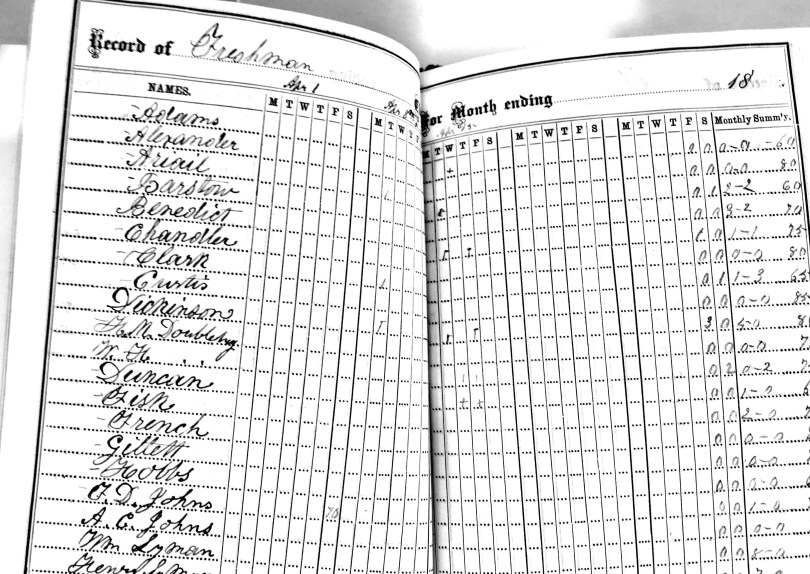 Record of Freshman
Apr 1
NAMES. M T W T F S M T W
Adams
Alexander
Abigail
Barstow
Benedict
Chandler
Clark
Curtis
Dickinson
H. M. Doubleday
W. H. "
Duncan
Fisk
French
Gillett
Hobbs
F. D. Johns
A. C. Johns
Wm Lyman
For Month ending 18
M T W T F S M T W T F S M T W T F S Monthly Summ'y.
0 0 0-0 60
0 0 0-0 80
0 1 2-2 60
0 0 3-2 70
1 0 1-1 75
0 0 0-0 80
0 1 1-3 65
0 0 0-0
3 0 5-0
0 0 0-0
0 2 0-2
0 0 1-0
0 0 2-0
0 0 0-0
0 0 0-0
0 0 0-0
0 0 1-0
0 0 0-0